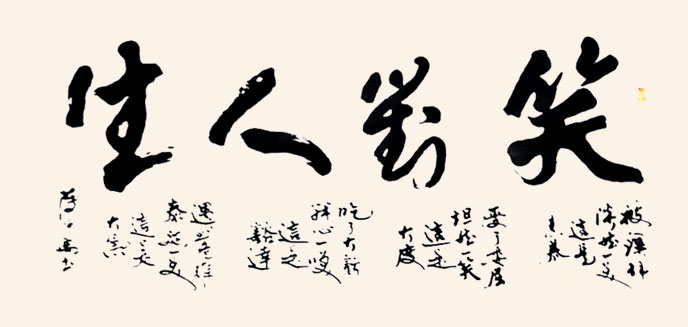 笑對人生
被誤解
淡然一笑
這是
素養
受了委屈
坦然一笑
這是
大度
吃了大虧
開心一笑
這是
豁達
泰然一笑
這是